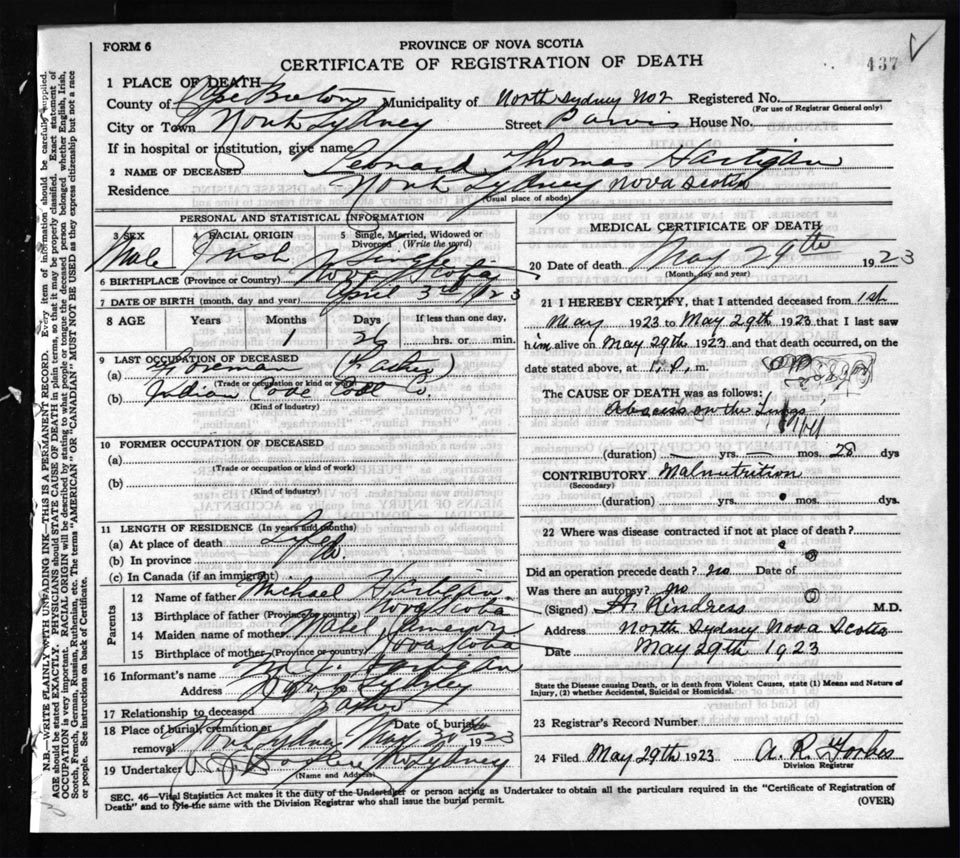 FORM 6
PROVINCE OF NOVA SCOTIA
CERTIFICATE OF REGISTRATION OF DEATH
437
1 PLACE OF DEATH
County of Cape Breton Municipality of North Sydney No 2 Registered No.
(For use of Registrar General only)
City or Town North Sydney Street House No.
If in hospital or institution, give name
2 NAME OF DECEASED Leonard Thomas Hartigan
Residence North Sydney Nova Scotia
(Usual place of abode)
PERSONAL AND STATISTICAL INFORMATION
3 SEX 4 RACIAL ORIGIN 5 Single, Married, Widowed or Divorced (Write the word)
Male Irish Single
6 BIRTHPLACE (Province or Country) Nova Scotia
7 DATE OF BIRTH (month, day and year) April 3rd 1923
8 AGE Years Months Days If less than one day,
1 26 hrs. or min.
9 LAST OCCUPATION OF DECEASED
(a) Foreman (Father)
(Trade or occupation or kind of work)
(b) Indian Cove Coal Co.
(Kind of industry)
10 FORMER OCCUPATION OF DECEASED
(a)
(Trade or occupation or kind of work)
(b)
(Kind of industry)
11 LENGTH OF RESIDENCE (In years and months)
(a) At place of death Life
(b) In province do.
(c) In Canada (if an immigrant)
Parents
12 Name of father Michael Hartigan
13 Birthplace of father (Province or country) Nova Scotia
14 Maiden name of mother Mabel
15 Birthplace of mother (Province or country) Nova Scotia
16 Informant's name M. J. Hartigan
Address North Sydney
17 Relationship to deceased Father
18 Place of burial, cremation or removal Date of burial
North Sydney May 30th 1923
19 Undertaker N Sydney
(Name and Address)
MEDICAL CERTIFICATE OF DEATH
20 Date of death May 29th 1923
(Month, day and year)
21 I HEREBY CERTIFY, that I attended deceased from 1st
May 1923 to May 29th 1923 that I last saw
him alive on May 29th 1923 and that death occurred, on the
date stated above, at 1 P. m.
The CAUSE OF DEATH was as follows:
Abscess on the Lungs
(duration) — yrs. — mos. 28 dys
CONTRIBUTORY Malnutrition
(Secondary)
(duration) yrs. mos. dys.
22 Where was disease contracted if not at place of death?
Did an operation precede death? no Date of
Was there an autopsy? no
(Signed) H. Rindress M.D.
Address North Sydney Nova Scotia
Date May 29th 1923
State the Disease causing Death, or in death from Violent Causes, state (1) Means and Nature of
Injury, (2) whether Accidental, Suicidal or Homicidal.
23 Registrar's Record Number
24 Filed May 29th 1923 A. R. Forbes
Division Registrar
SEC. 46—Vital Statistics Act makes it the duty of the Undertaker or person acting as Undertaker to obtain all the particulars required in the "Certificate of Registration of
Death" and to fyle the same with the Division Registrar who shall issue the burial permit.
(OVER)
N.B.—WRITE PLAINLY WITH UNFADING INK—THIS IS A PERMANENT RECORD. Every item of information should be carefully supplied.
AGE should be stated EXACTLY. PHYSICIANS should STATE CAUSE OF DEATH in plain terms, so that it may be properly classified. Exact statement of
OCCUPATION is very important. RACIAL ORIGIN will be described by stating to what people or tongue the deceased person belonged, whether English, Irish,
Scotch, French, German, Russian, Ruthenian, etc. The terms "AMERICAN" OR "CANADIAN" MUST NOT BE USED as they express citizenship but not a race
or people. See instructions on back of Certificate.